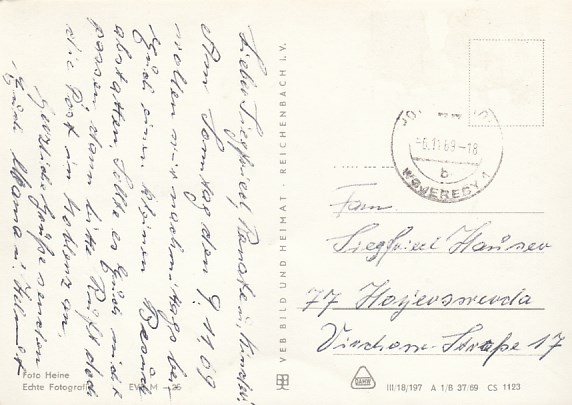 Lieber Siegfried, Renate u. Kinder!
Am Sonntag den 9.11.69
wollen wir nachmittags bei
Euch einen kleinen Besuch
abstatten. Sollte es Euch nicht
passen dann bitte Ruft doch
die Post in Koblenz an.
Herzliche Grüße senden
Euch Mama u. Helmut
Foto Heine
Echte Fotografie
VEB BILD UND HEIMAT · REICHENBACH I. V.
-6.11.69-18
b
WOJERECY 1
Fam.
Siegfried Hauser
77 Hoyerswerda
Straße 17
DAHW
III/18/197 A 1/B 37/69 CS 1123